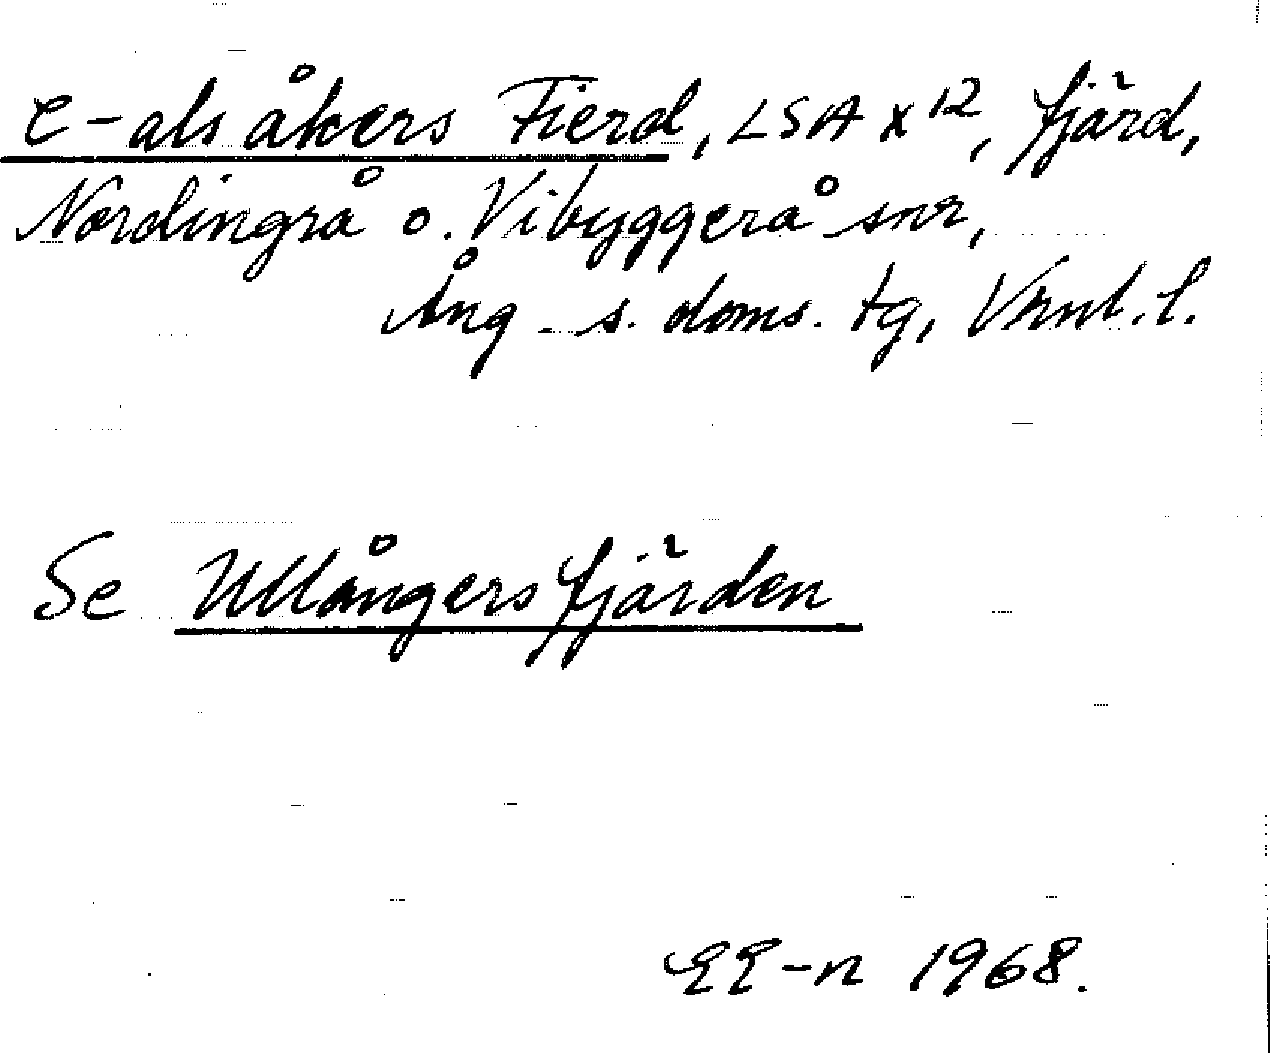 e-als åkers Fierd, LSA X 12, fjärd,
Nordingrå o. Vibyggerå snr,
Ång. s. doms. tg, Vrnl. l.
Se Ullångersfjärden
EE-n 1968.